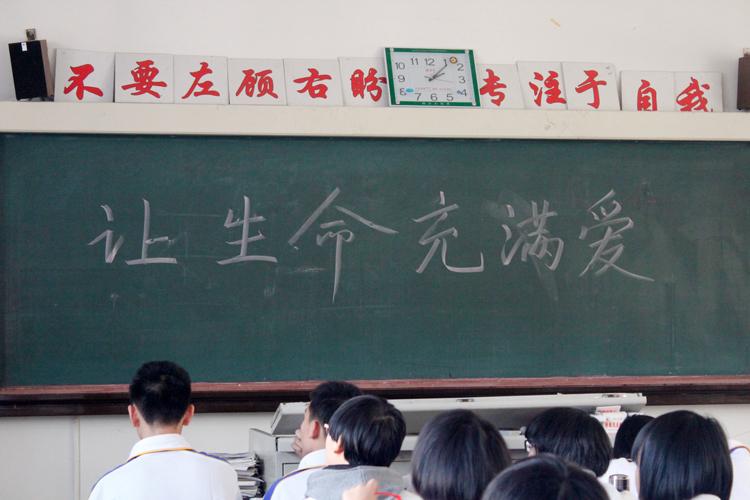 不要左顾右盼 专注于自我
10 11 12 1
9 3
8 7 6 5 4
让生命充满爱